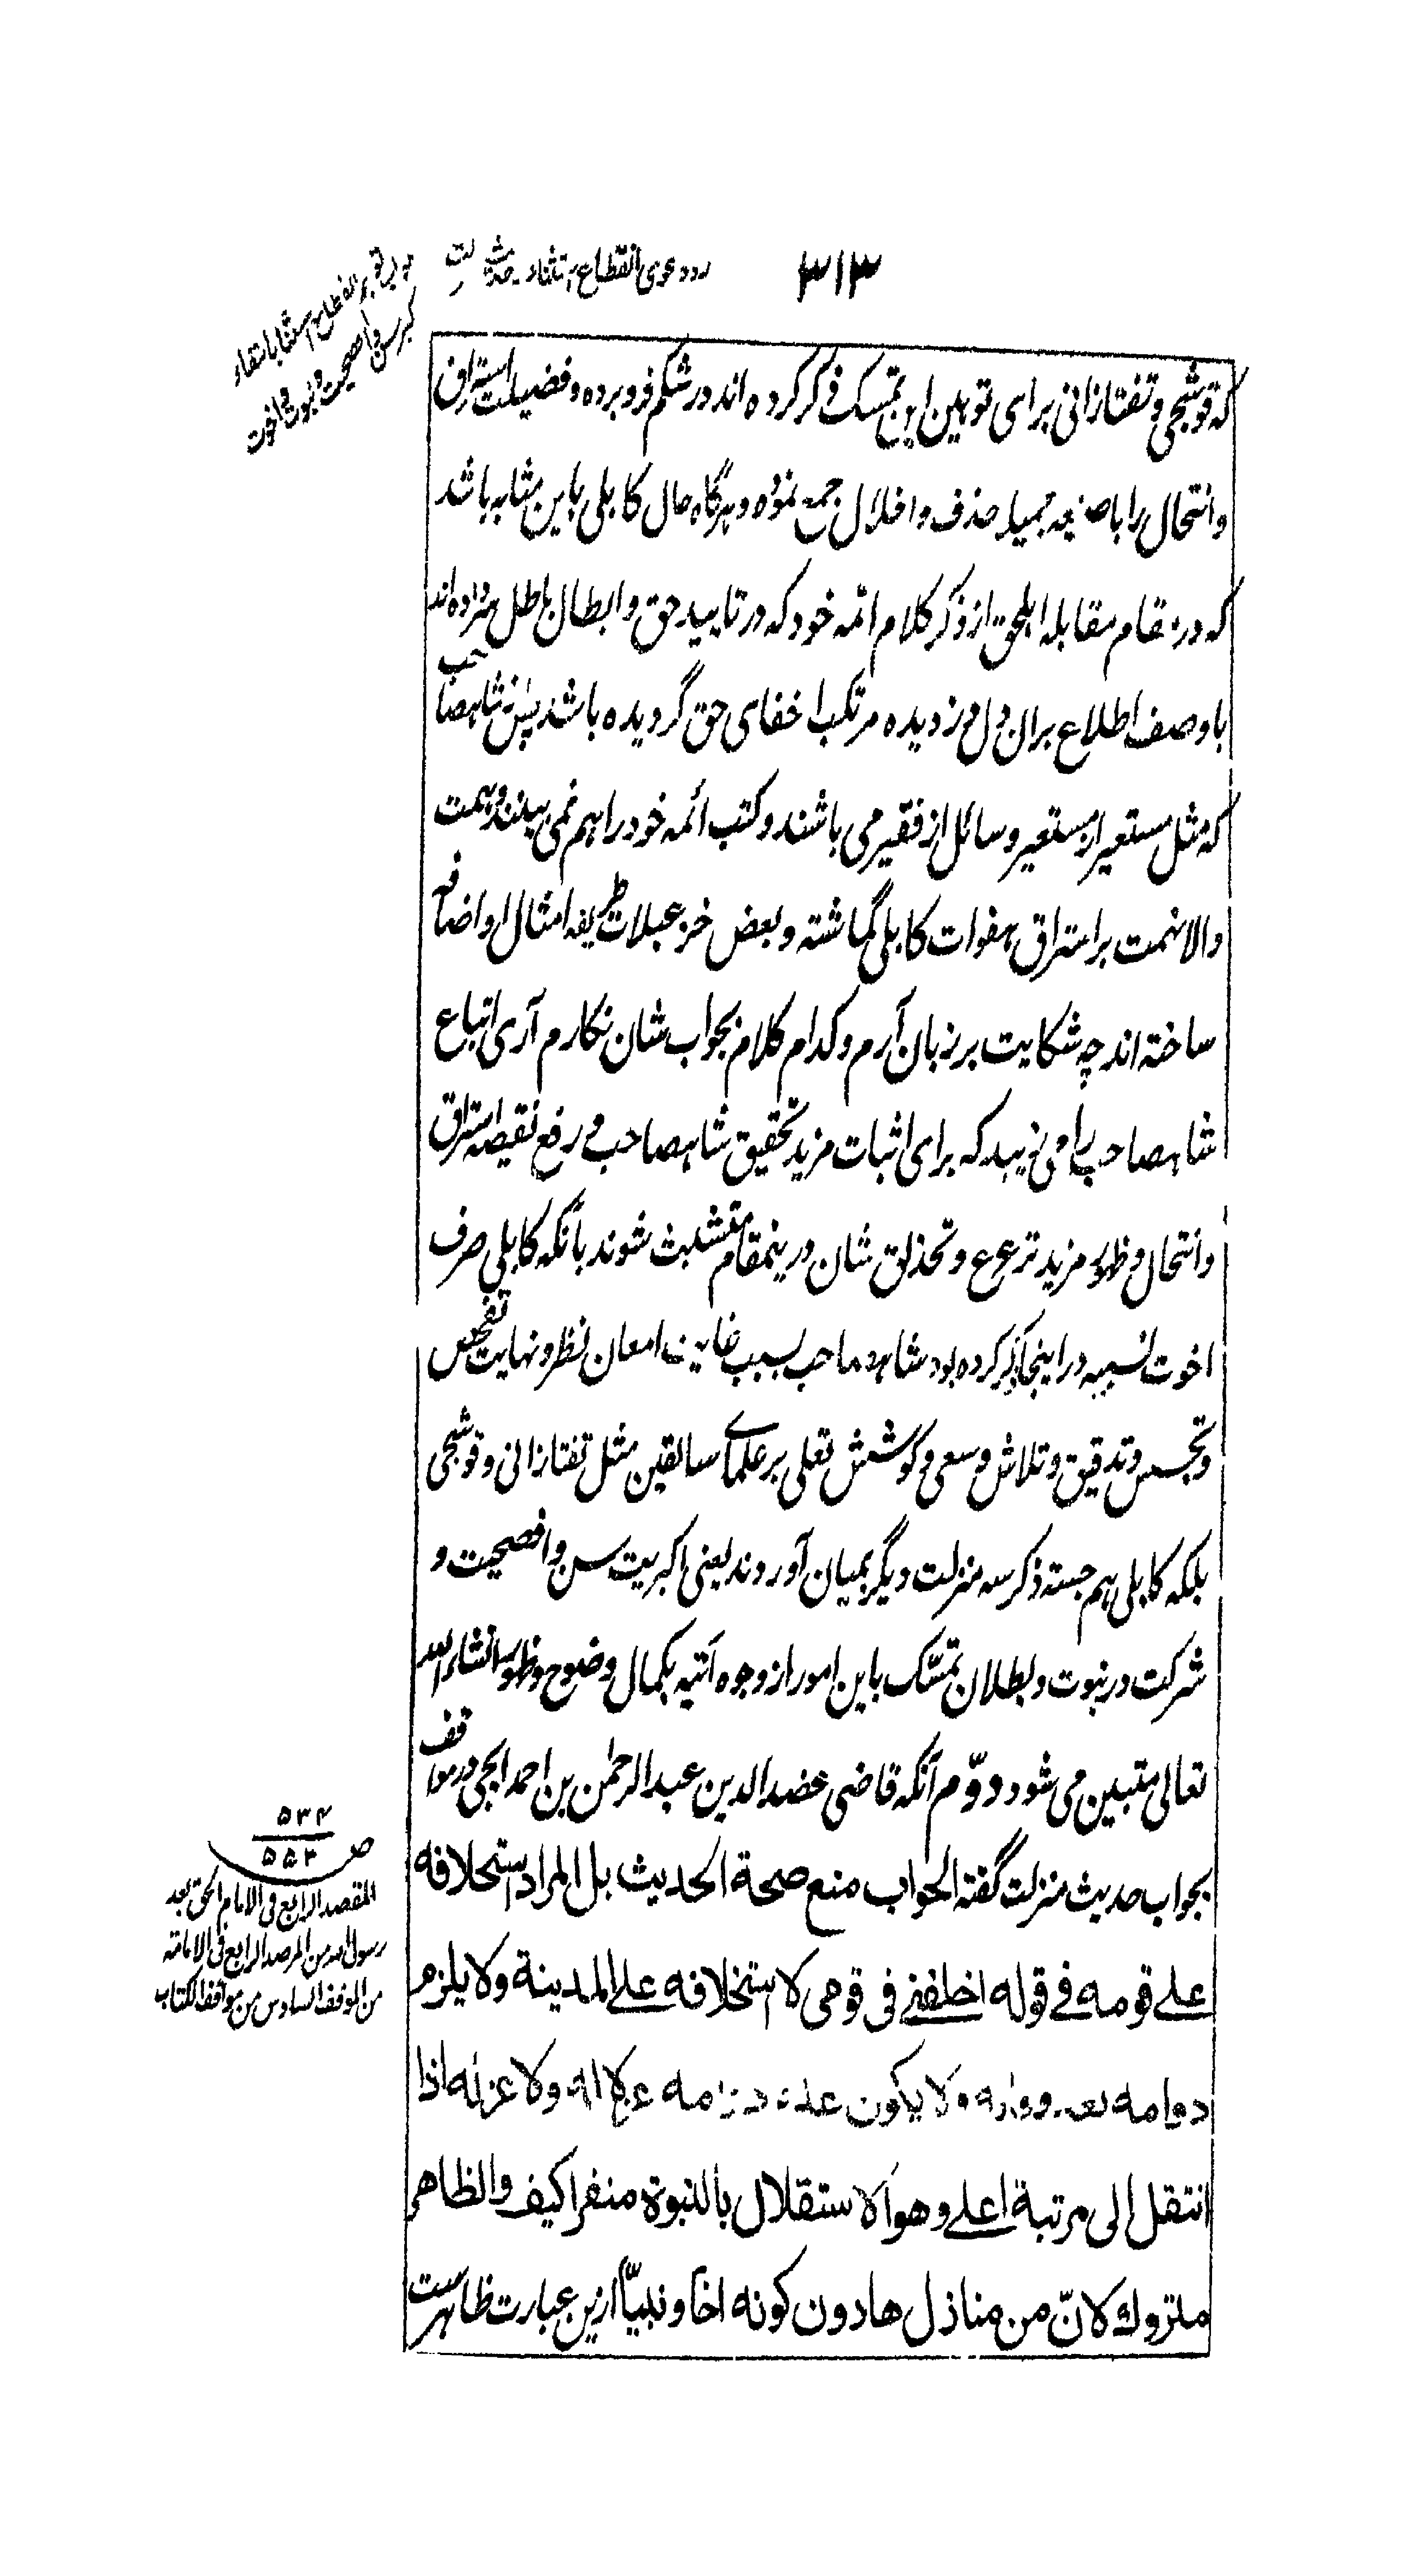 ۳۱۳
رد دعوی انقطاع استثناء حدیث
که قوشجی و تفتازانی برای توهین این تمسک ذکر کرده اند در شکم فرو برده و فضیلت استراق
و انتحال را با صنیعه جمیله حذف و اخلال جمع نموده و هرگاه حال کابلی باین مثابه باشد
که در مقام مقابله اهلحق از ذکر کلام ائمه خود که در تایید حق و ابطال باطل سر داده اند
با وصف اطلاع بران دل دزدیده مرتکب اخفای حق گردیده باشد پس از شاهصاحب
که مثل مستعیر از مستعیر و سائل از فقیر می باشند و کتب ائمه خود را هم نمی بینند و همت
والا نهمت بر استراق هفوات کابلی گماشته و بعض خزعبلات طریفه امثال او اضافه
ساخته اند چه شکایت بر زبان آرم و کدام کلام بجواب شان نگارم آری اتباع
شاهصاحب را می زیبد که برای اثبات مزید تحقیق شاهصاحب و رفع نقیصه استراق
و انتحال و ظهور مزید ترعرع و تحذلق شان درینمقام متشبث شوند بآنکه کابلی صرف
اخوت نسبیه در اینجا ذکر کرده بود شاهصاحب بسبب غایت امعان نظر و نهایت تفحص
و تجسس و تدقیق و تلاش و سعی و کوشش تعلی بر علمای سابقین مثل تفتازانی و قوشجی
بلکه کابلی هم جسته ذکر سه منزلت دیگر بمیان آوردند یعنی اکبریت سن و افصحیت و
شرکت در نبوت و بطلان تمسّک باین امور از وجوه آتیه بکمال وضوح و ظهور انشاء الله
تعالی متبین می شود دوّم آنکه قاضی عضد الدین عبد الرحمن بن احمد ایجی در مواقف
بجواب حدیث منزلت گفته الجواب منع صحة الحدیث بل المراد استخلافه
علی قومه فی قوله اخلفنی فی قومی لا ستخلافه علی المدینة ولا یلزم
دوامه بعد وفاته ولا یکون عدم دوامه عزلا له ولا عزله اذا
انتقل الی مرتبة اعلی وهو الاستقلال بالنبوة منفرا کیف والظاهر
متروك لانّ من منازل هارون کونه اخا و نبیّا ازین عبارت ظاهرست
ص ۵۳۴
۵۵۳
المقصد الرابع فی الامام الحق بعد
رسول الله من المرصد الرابع فی الامامة
من الموقف السادس من مواقف الکتاب